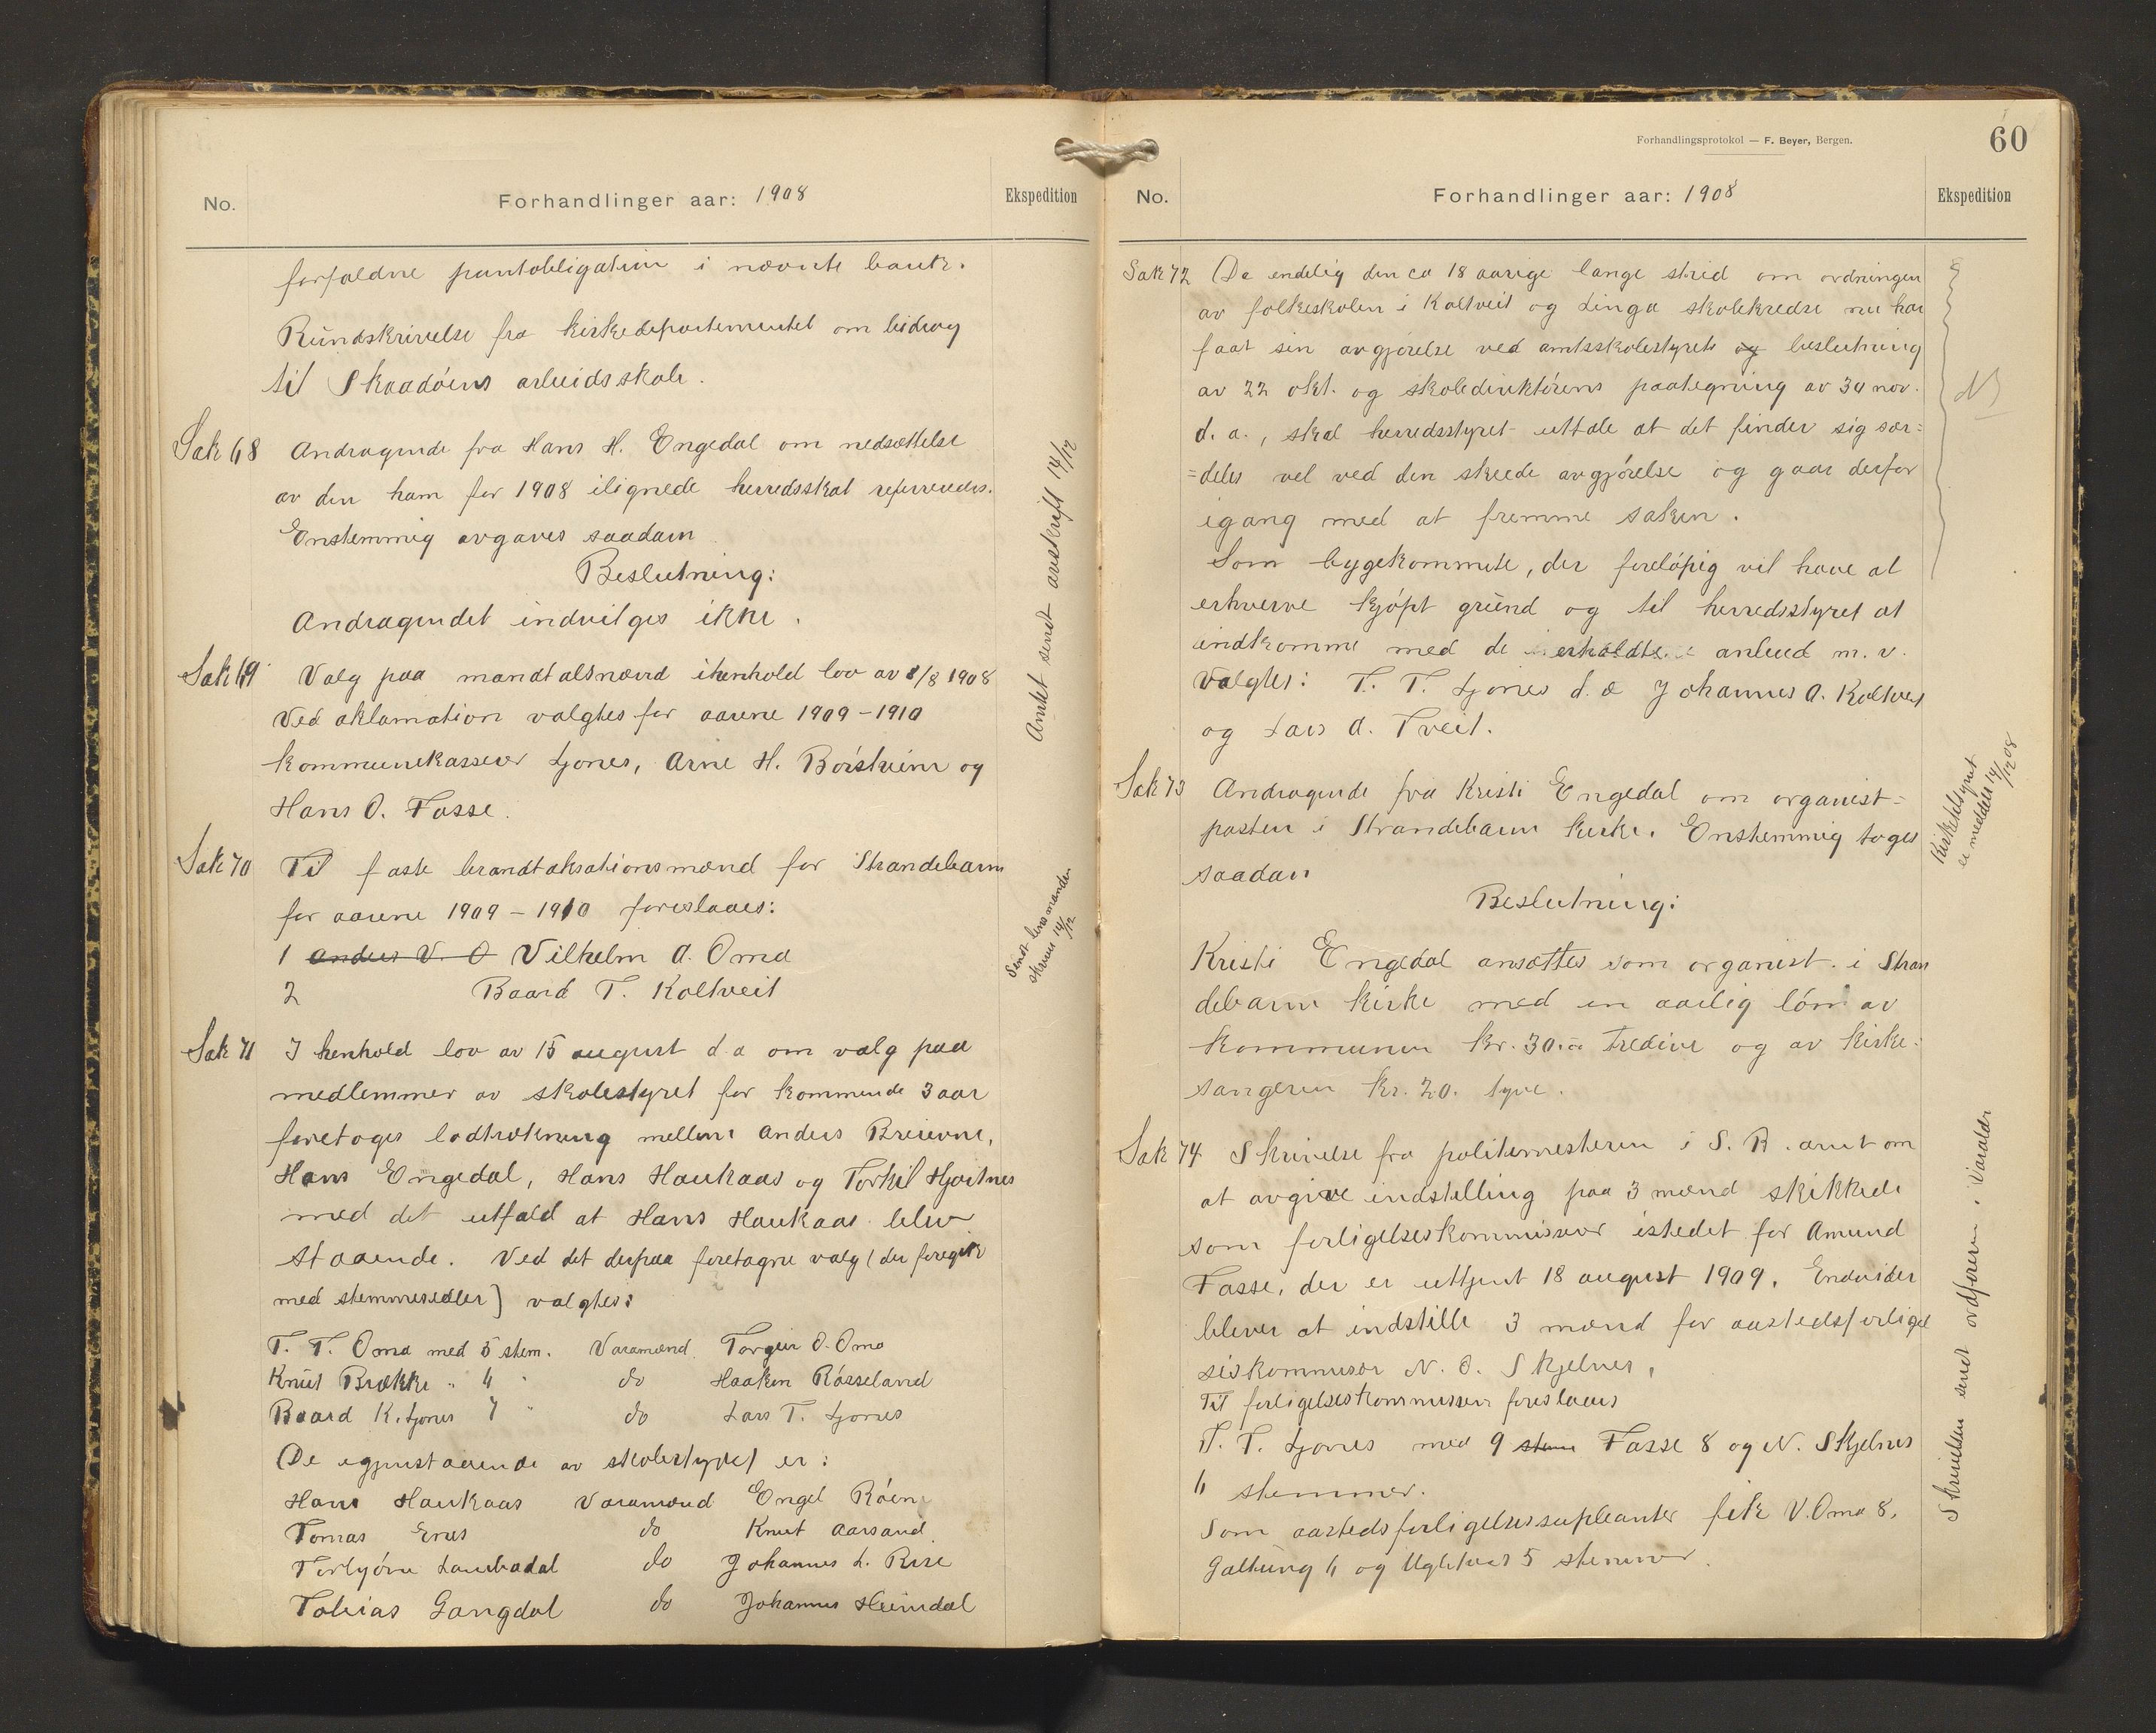 No.
Forhandlinger aar: 1908
Ekspedition
forfaldne pantobligation i nævnte bank.
Rundskrivelse fra kirkedepartementet om bidrag
til Skaadöens arbeidsskole.
Sak 68 Andragende fra Hans H. Engedal om nedsættelse
av den ham for 1908 ilignede herredsskat referertes.
Enstemmig avgaves saadan
Beslutning:
Andragendet indvilges ikke.
Amtet sendt avskrift 14/12
Sak 69 Valg paa mandtalsnævnd ihenhold lov av 8/8 1908
Ved aklamation valgtes for aarene 1909-1910
kommunekasserer Ljones, Arne H. Börsheim og
Hans O. Fosse.
Sak 70 Til faste brandtaksationsmænd for Strandebarm
for aarene 1909-1910 foreslaaes:
1 Anders V. O Vilhelm A. Oma
2 Baard T. Koltveit
Sendt lensmanden
skrives 14/12
Sak 71 I henhold lov av 15 august d.a om valg paa
medlemmer av skolestyret for kommende 3 aar
foretoges lodtrækning mellem Anders Breievne,
Hans Engedal, Hans Haukaas og Torkil Hjartnes
med det utfald at Hans Haukaas blev
staaende. Ved det derpaa foretagne valg (der foregik
med stemmesedler) valgtes:
T. T. Oma med 5 stem. Varamænd Torgeir O. Oma
Knut Brække " 6 " do Haakon Rösseland
Baard K. Ljones 7 " do Lars T. Ljones
De igjenstaaende av skolestyret er:
Hans Haukaas Varamænd Engel Röen
Tomas Enes do Knut Aarsand
Torbjörn Laubadal do Johannes L. Rise
Tobias Gangdal do Johannes Heimdal
Forhandlingsprotokol — F. Beyer, Bergen.
60
No.
Forhandlinger aar: 1908
Ekspedition
Sak 72 Da endelig den ca 18 aarige lange strid om ordningen
av folkeskolen i Koltveit og Linga skolekredse nu har
faat sin avgjørelse ved amtsskolestyrets og beslutning
av 22 okt. og skoledirektörens paategning av 30 nov.
d. a., skal herredsstyret uttale at det finder sig sær=
=deles vel ved den skeede avgjörelse og gaar derfor
igang med at fremme saken.
NB
Som bygekommite, der forelöpig vil have at
erhverve kjöpt grund og til herredsstyret at
indkomme med de erholdte anbud m. v.
valgtes: T. T. Ljones d. æ Johannes A. Koltveit
og Lars A. Tveit.
Sak 73 Andragende fra Kristi Engedal om organist=
posten i Strandebarm kirke. Enstemmig toges
saadan
Beslutning:
Kristi Engedal ansættes som organist i Stran
debarm kirke med en aarlig lön av
kommunen kr. 30.00 tredive og av kirke=
sangeren kr. 20. tyve.
Kirketilsynet
er meddelt 14/12 08
Sak 74 Skrivelse fra politimesteren i S. B. amt om
at avgive indstilling paa 3 mænd skikkede
som forligelseskommissær istedet for Amund
Fosse, der er uttjent 18 august 1909. Endvider
blever at indstille 3 mænd for aastedsforligel
seskommisær N. O. Skjelnes,
Til forligelseskommissær foreslaaes
T. T. Ljones med 9 stem Fosse 8 og N. Skjelnes
6 stemmer.
Som aastedsforligelsessupleanter fik V. Oma 8,
Galtung 6 og Uglehus 5 stemmer.
Skrivelsen sendt ordføreren i Varaldsø